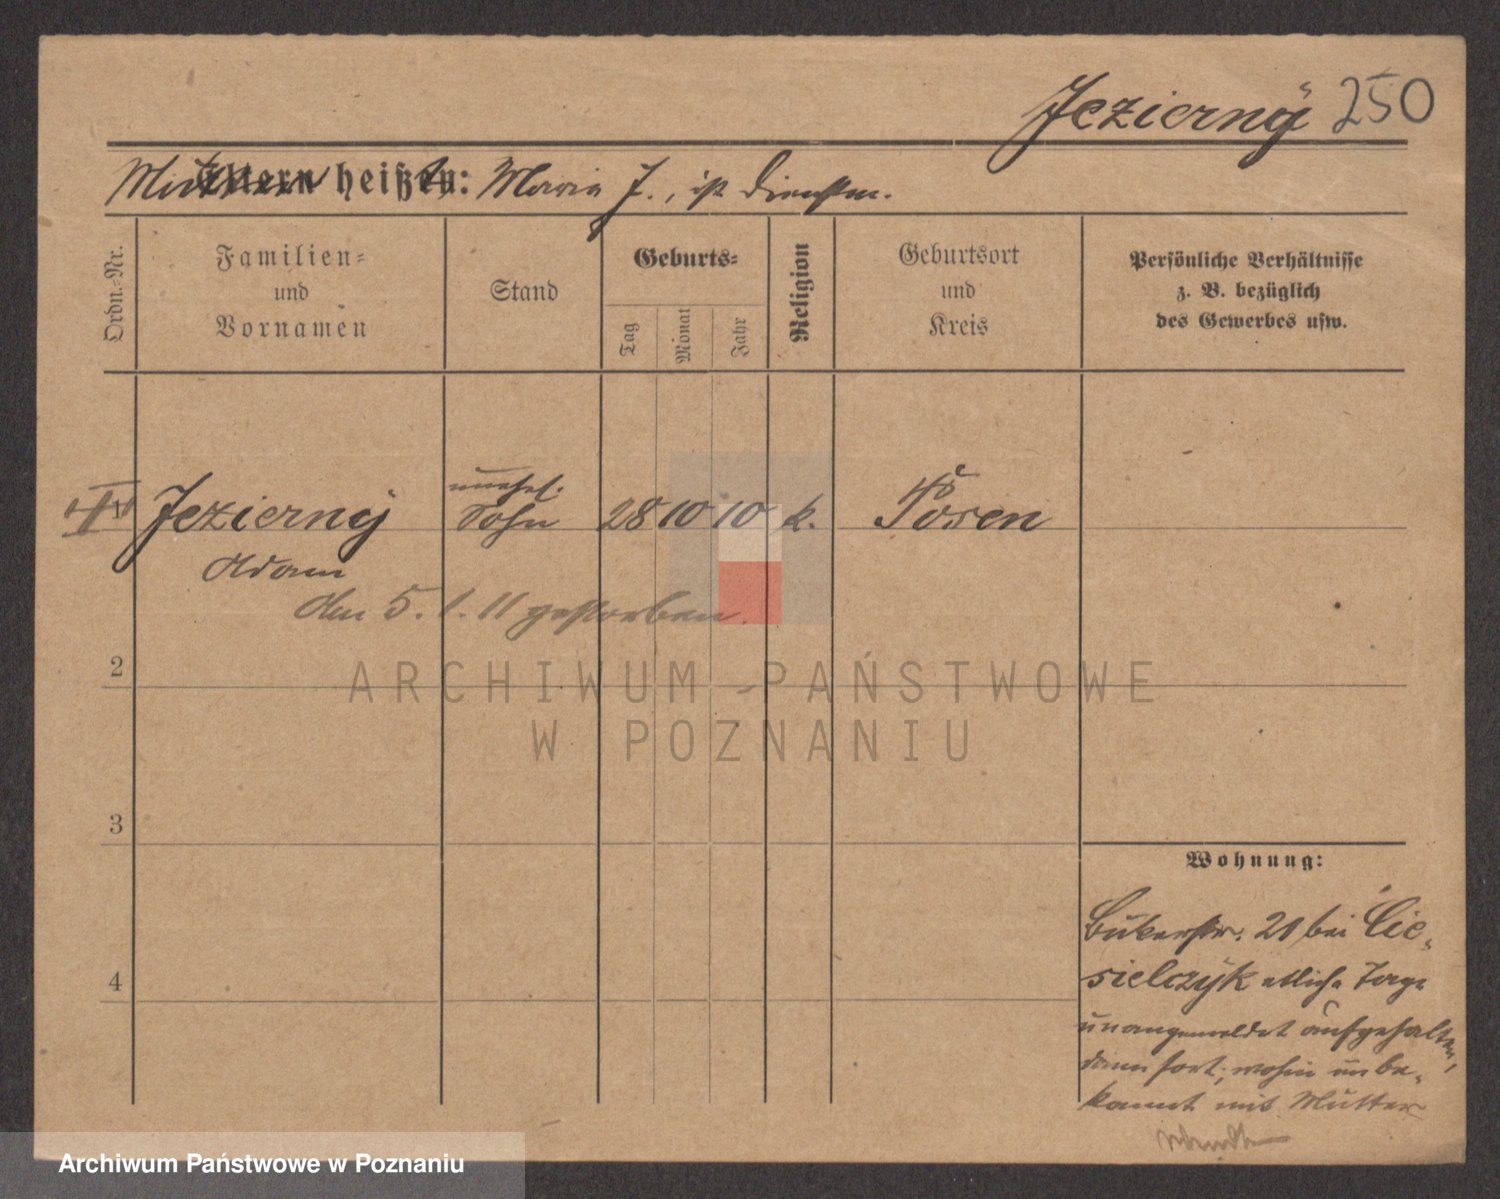 Jezierny 250
Mutter heißt: Maria J., ist Dienstm.
Ordn.-Nr.
Familien-
und
Vornamen
Stand
Geburts-
Tag
Monat
Jahr
Religion
Geburtsort
und
Kreis
Persönliche Verhältnisse
z. B. bezüglich
des Gewerbes usw.
unehel.
Jezierny Sohn 28 10 10 k. Posen
Adam
den 5. 1. 11 gestorben.
2
3
4
Wohnung:
Bukerstr. 21 bei Cie-
sielczyk etliche Tage
unangemeldet aufgehalten,
dann fort; wohin unbe-
kannt mit Mutter
ARCHIWUM PAŃSTWOWE
W POZNANIU
Archiwum Państwowe w Poznaniu